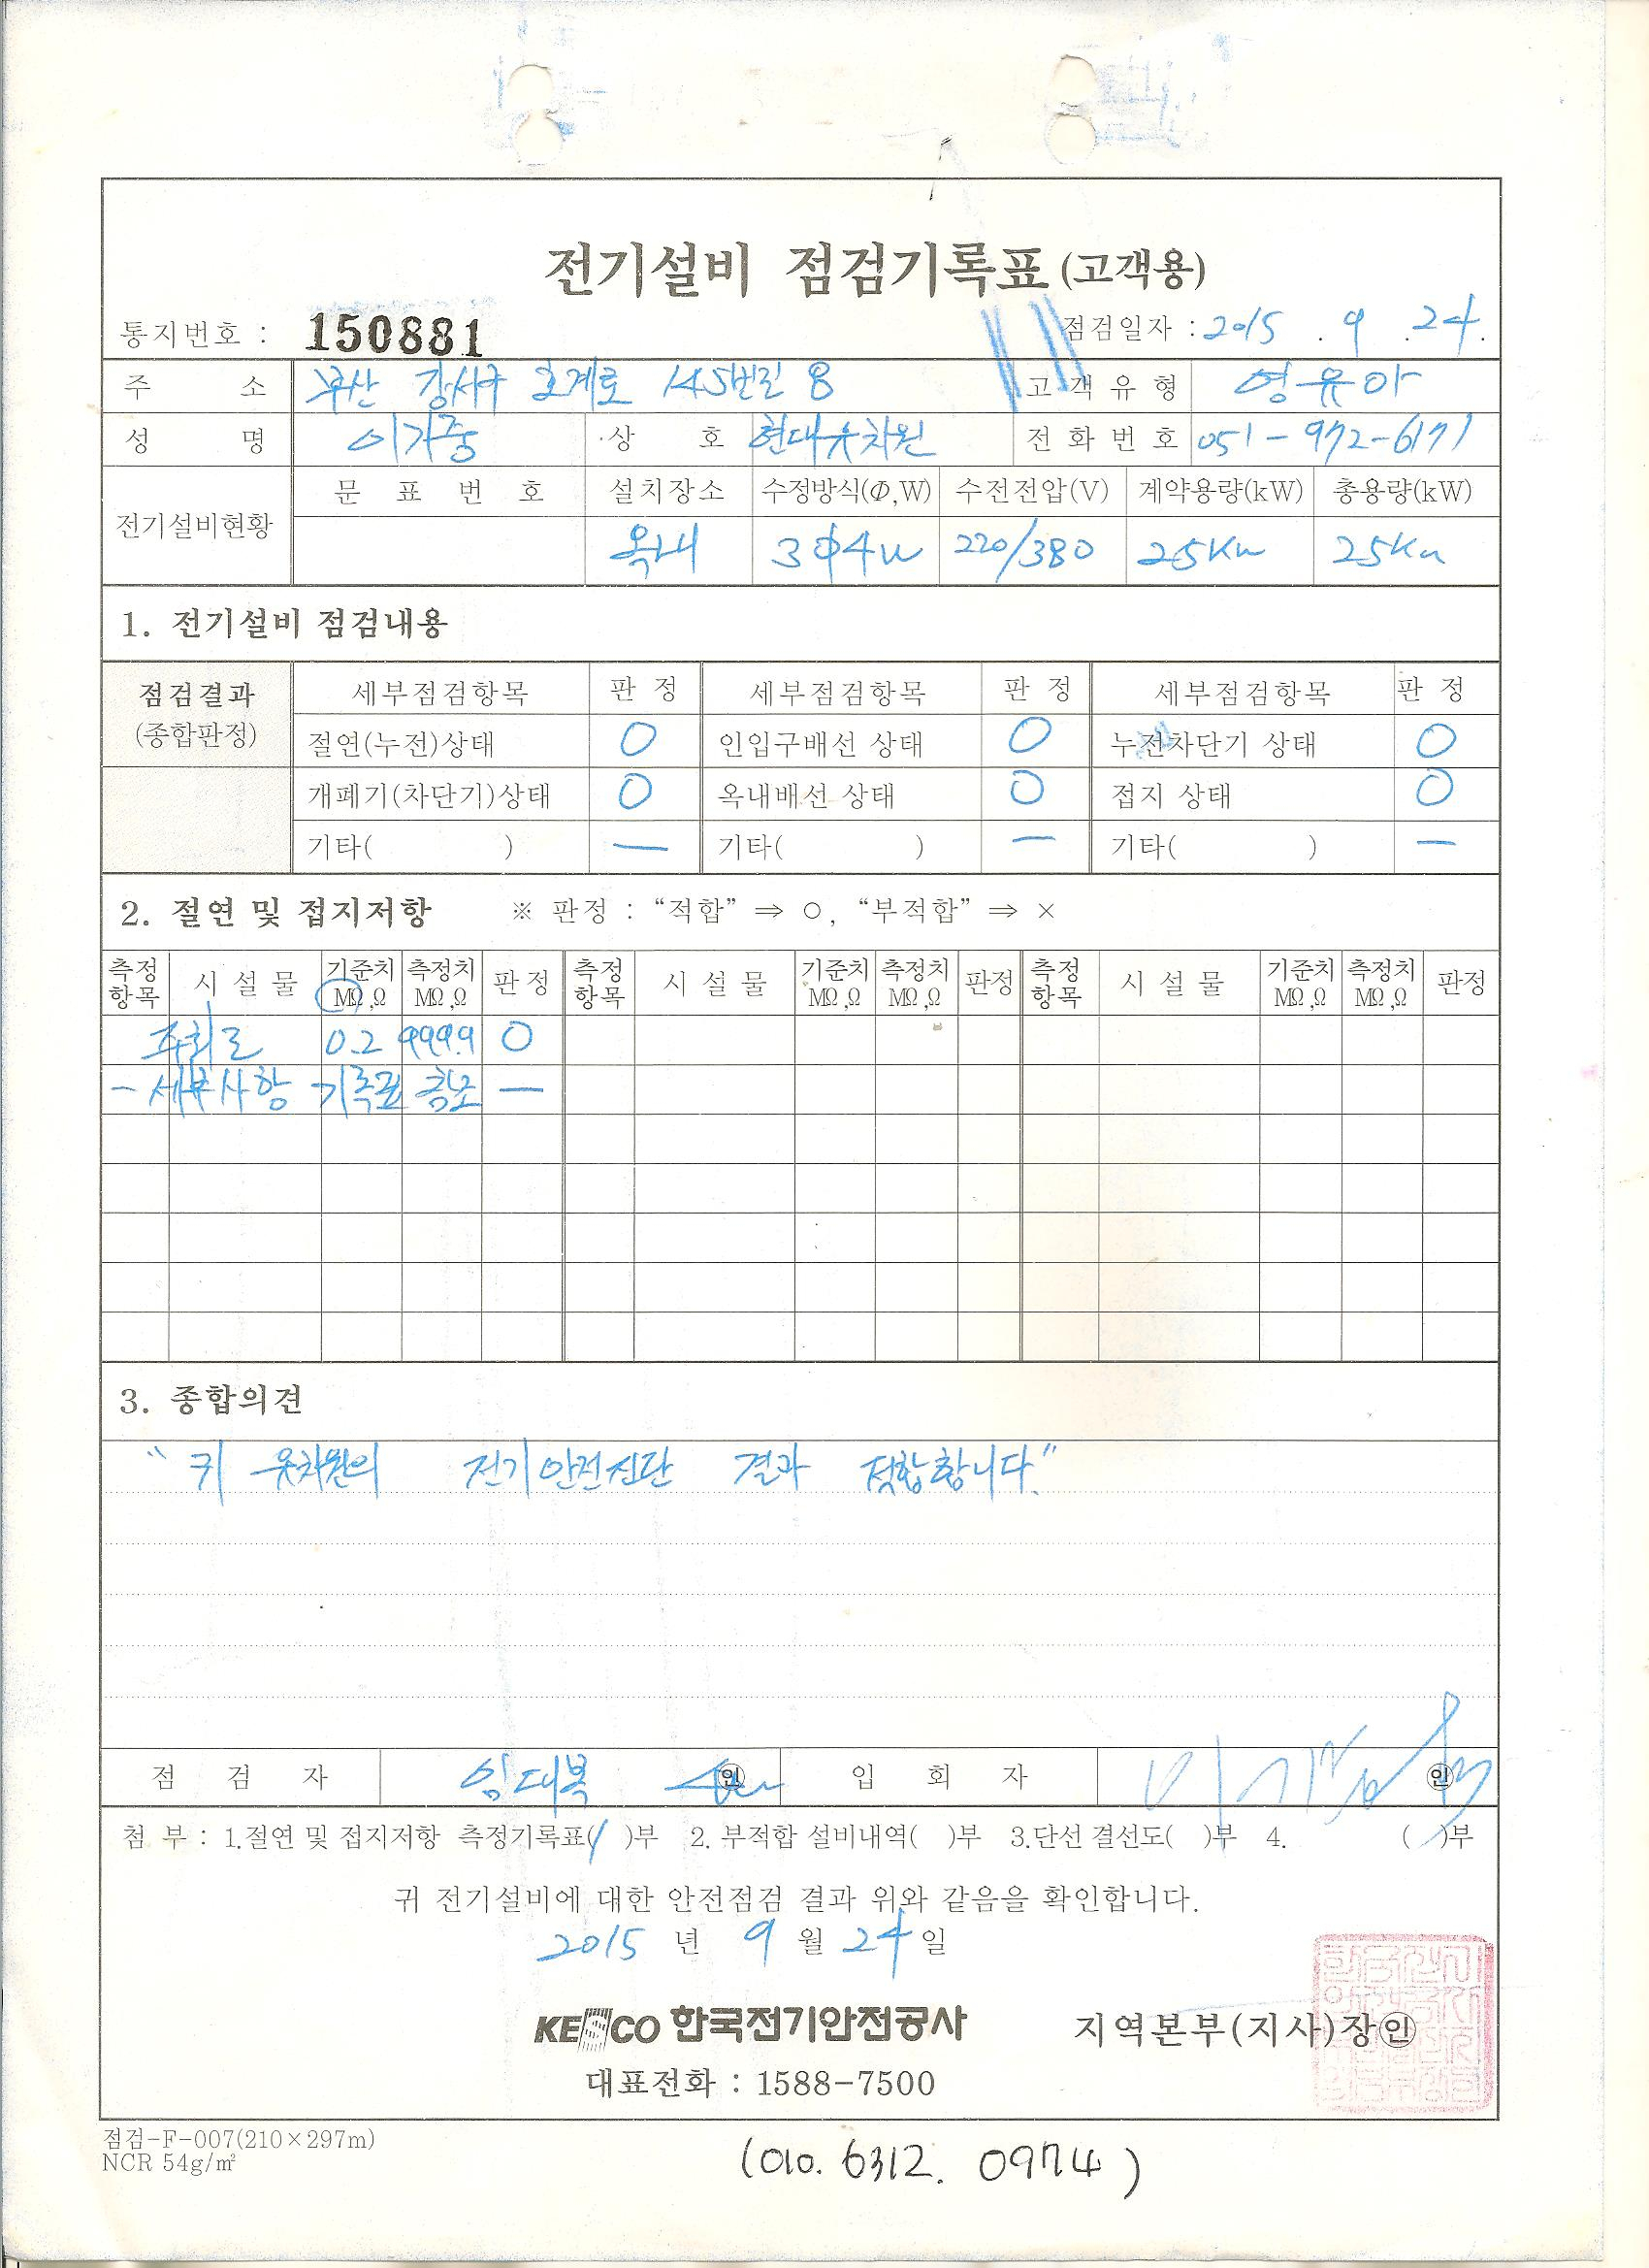 전기설비 점검기록표(고객용)
통지번호 : 150881 점검일자 : 2015 . 9 . 24.
주 소 부산 강서구 호계로 145번길 8 고객유형 영유아
성 명 이가중 상 호 현대유치원 전화번호 051-972-6171
전기설비현황 문 표 번 호 설치장소 수정방식(Φ,W) 수전전압(V) 계약용량(kW) 총용량(kW)
옥내 3Φ4W 220/380 25Kw 25Kw
1. 전기설비 점검내용
점검결과 (종합판정) 세부점검항목 판 정 세부점검항목 판 정 세부점검항목 판 정
절연(누전)상태 ○ 인입구배선 상태 ○ 누전차단기 상태 ○
개폐기(차단기)상태 ○ 옥내배선 상태 ○ 접지 상태 ○
기타( ) — 기타( ) — 기타( ) —
2. 절연 및 접지저항 ※ 판정 : “적합” ⇒ ○, “부적합” ⇒ ×
측정항목 시 설 물 기준치 MΩ,Ω 측정치 MΩ,Ω 판정 측정항목 시 설 물 기준치 MΩ,Ω 측정치 MΩ,Ω 판정 측정항목 시 설 물 기준치 MΩ,Ω 측정치 MΩ,Ω 판정
주회로 0.2 999.9 ○
- 세부사항 기록표 참조 —
3. 종합의견
“귀 유치원의 전기안전진단 결과 적합합니다.”
점 검 자 임대복 ㊞ 입 회 자 ㊞
첨 부 : 1.절연 및 접지저항 측정기록표(1)부 2. 부적합 설비내역( )부 3.단선 결선도( )부 4. ( )부
귀 전기설비에 대한 안전점검 결과 위와 같음을 확인합니다.
2015 년 9 월 24 일
KESCO 한국전기안전공사 지역본부(지사)장㊞
대표전화 : 1588-7500
점검-F-007(210×297m)
NCR 54g/㎡
(010. 6312. 0974)